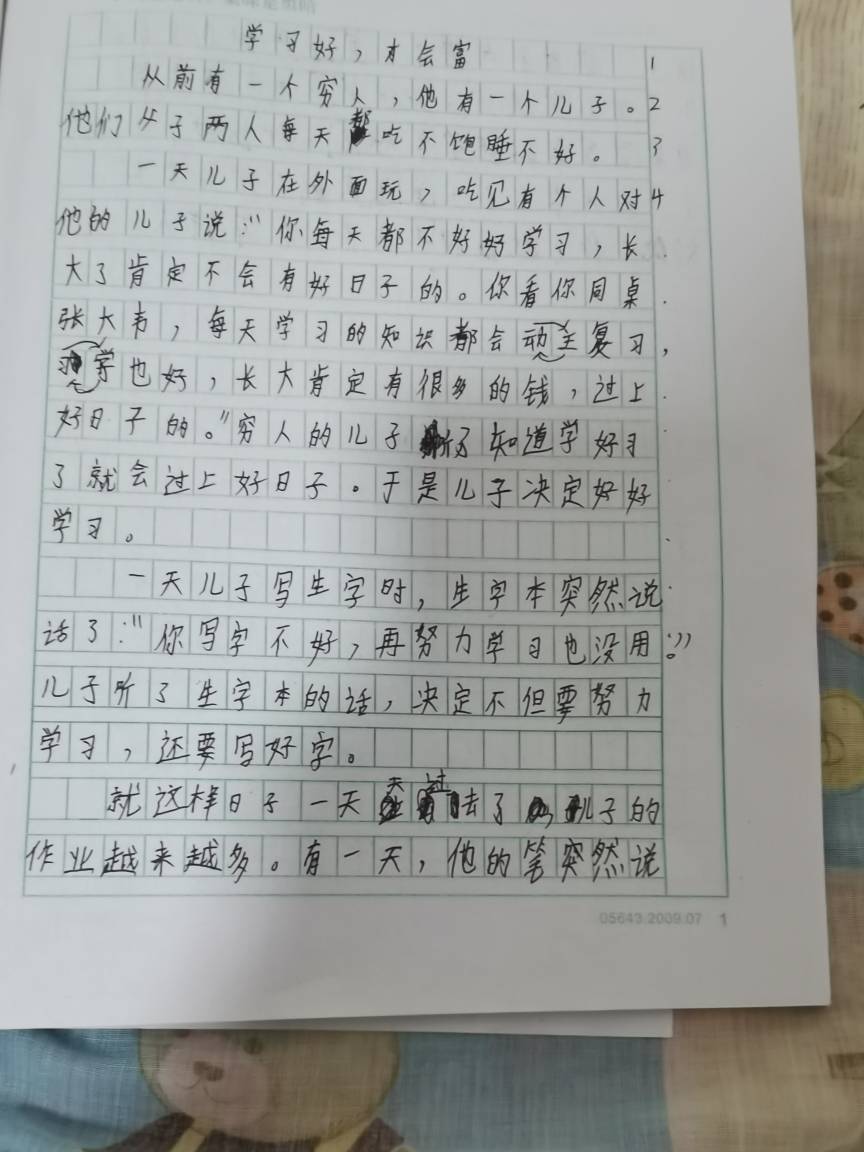 学习好，才会富 1
从前有一个穷人，他有一个儿子。 2
他们父子两人每天都吃不饱睡不好。 3
一天儿子在外面玩，吃见有个人对 4
他的儿子说："你每天都不好好学习，长
大了肯定不会有好日子的。你看你同桌
张大韦，每天学习的知识都会动主复习，
习学也好，长大肯定有很多的钱，过上
好日子的。"穷人的儿子听了知道学好习
了就会过上好日子。于是儿子决定好好
学习。
一天儿子写生字时，生字本突然说
话了："你写字不好，再努力学习也没用。"
儿子听了生字本的话，决定不但要努力
学习，还要写好字。
就这样日子一天天过去了儿子的
作业越来越多。有一天，他的笔突然说
05643.2009.07 1